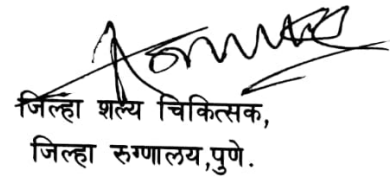 जिल्हा शल्य चिकित्सक,
जिल्हा रुग्णालय,पुणे.